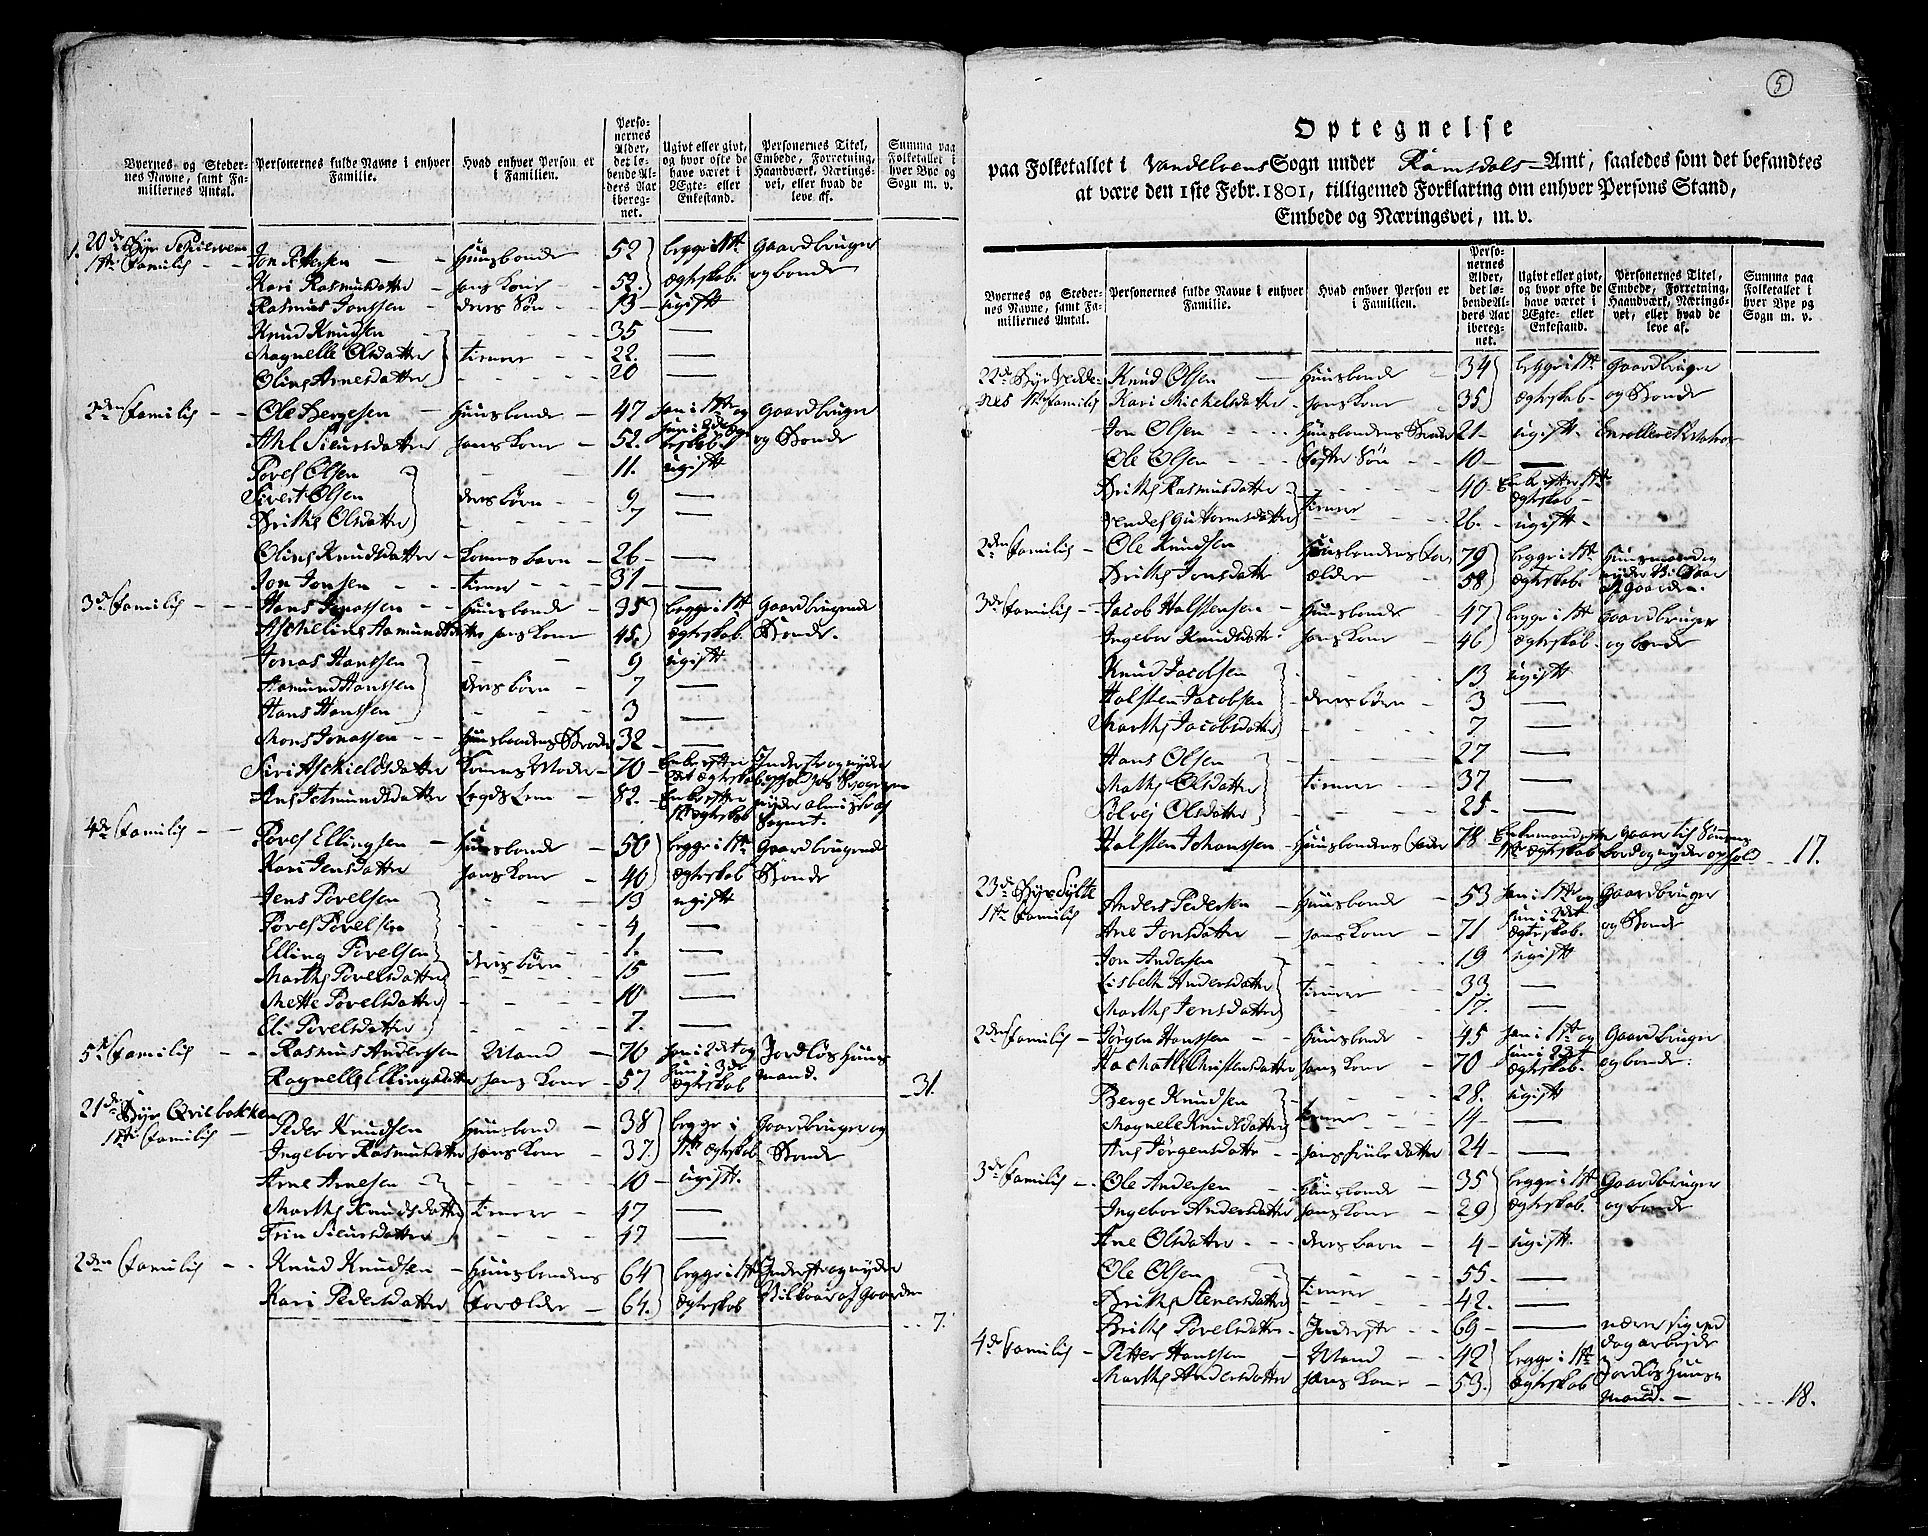 Byernes og Steder-
nes Navne, samt Fa-
miliernes Antal.
Personernes fulde Navne i enhver
Familie.
Hvad enhver Person er
i Familien.
Perso-
nernes
Alder,
det lø-
bende Al-
ders Aar
ibereg-
net.
Ugivt eller givt,
og hvor ofte de
have været i
Ægte- eller
Enkestand.
Personernes Titel,
Embede, Forretning,
Haandværk, Nærings-
vei, eller hvad de
leve af.
Summa paa
Folketallet i
hver Bye og
Sogn m. v.
20de Bye
1ste Familie Jon Pedersen Huusbonde 52 begge i 1ste Gaardbruger
Kari Rasmusdatter hans Kone 52. Ægteskab. og bonde
Rasmus Jonssen deres Søn 13 ugift
Knud Knudsen 35
Magnelle Olsdatter tiener 22.
Oline Arnesdatter 20
2den Familie Ole Bergesen Huusbonde 47 han i 1ste og Gaardbruger
Ahl Siursdatter hans Kone 52. hun i 2det Ægteskab og Bonde
Povel Olsen 11. ugift
Sivert Olsen deres børn 9
Brithe Olsdatter 7
Oline Knudsdatter Konens barn 26
Jon Jonsen tiener 31
3de Familie Hans Jonassen Huusbonde 35 begge i 1ste Gaardbrugende
Ascheline Aamundsdatter hans Kone 45. Ægteskab Bonde.
Jonas Hanssen 9 ugift
Aamund Hanssen deres børn 7
Hans Hanssen 3
Mons Jonassen Huusbondens Broder 32
Siri Aschieldsdatter Konens Moder 70
Ane Istmundsdatter Legds Lem 82.
4de Familie Povel Ellingsen Huusbonde 50 begge i 1ste Gaardbrugende
Kari Jensdatter hans Kone 40 Ægteskab Bonde
Jens Povelsen 13 ugift
Povel Povelsen 4
Elling Povelsen deres børn 1.
Marthe Povelsdatter 15
Mette Povelsdatter 10
Eli Povelsdatter 7.
5te Familie Rasmus Anderssen Mand 70 han i 2det og Jordløs Huus
Ragnelle Ellingsdatter hans Kone 57 hun i 3die Ægteskab mand. 31.
21de Bye Qvilbakken
1ste Familie Peder Knudsen Huusbond 38 begge i Gaardbruger og
Ingebor Rasmusdatter hans Kone 37. 1ste Ægteskab Bonde
Arne Arnesen 10 ugift.
Marthe Knudsdatter tiener 47
Trin Siursdatter 47
2den Familie Knud Knudsen Huusbondens 64 begge i 1ste Inderste og nyder
Kari Pedersdatter Forældre 64. Ægteskab Vilkaar af Gaarden
7.
5
Optegnelse
paa Folketallet i Vandelvens Sogn under Romsdals Amt, saaledes som det befandtes
at være den 1ste Febr. 1801, tilligemed Forklaring om enhver Persons Stand,
Embede og Næringsvei, m. v.
Byernes og Steder-
nes Navne, samt Fa-
miliernes Antal.
Personernes fulde Navne i enhver
Familie.
Hvad enhver Person er
i Familien.
Perso-
nernes
Alder,
det lø-
bende Al-
ders Aar
ibereg-
net.
Ugivt eller givt,
og hvor ofte de
have været i
Ægte- eller
Enkestand.
Personernes Titel,
Embede, Forretning,
Haandværk, Nærings-
vei, eller hvad de
leve af.
Summa paa
Folketallet i
hver Bye og
Sogn m. v.
22de Bye Vedde- Knud Olsen Huusbonde 34 begge i 1ste Gaardbruger
nes 1ste Familie Kari Michelsdatter hans Kone 35 Ægteskab og Bonde
Jon Olsen Huusbondens Broder 21 ugift Enrolleret Matros
Ole Olsen foster Søn 10
Brithe Rasmusdatter 40 Enke efter 1ste Ægteskab
Guttormsdatter tiener 26. ugift
2den Familie Ole Knudsen Huusbondens For 79 begge i 1ste Huusmand og
Brithe Jonsdatter ældre 58 Ægteskab nyder Vilkaar af Gaarden.
3de Familie Jacob Halstensen Huusbonde 47 begge i 1ste Gaardbruger
Ingebor Knudsdatter hans Kone 46 Ægteskab og bonde
Knud Jacobsen 13 ugift
Halsten Jacobsen deres børn 3
Marthe Jacobsdatter 7
Hans Olsen 27
Mathe Olsdatter tiener 37
Solvej Olsdatter 25
Halsten Johanssen Huusbondens Fader 78 Enkemand efter 1ste Ægteskab 17.
23de Bye Sylte
1ste Familie Anders Pedersen Huusbonde 53 han i 1ste og Gaardbruger
Ane Jonsdatter hans Kone 71 hun i 2det Ægteskab. og Bonde
Jon Andersen 19 ugift
Lisbeth Andersdatter tiener 33.
Marthe Jonsdatter 17.
2den Familie Jørgen Hanssen Huusbonde 45 han i 1ste og Gaardbruger
Christensdatter hans Kone 70 hun i 2det Ægteskab. og bonde.
Berge Knudsen 28. ugift
Magnele Knudsdatter tiener 14
Ane Jørgensdatter hans datter 24
3de Familie Ole Andersen Huusbonde 35 begge i 1ste Gaardbruger
Ingebor Andersdatter hans Kone 29 Ægteskab. og bonde
Ane Olsdatter deres barn 4 ugift.
Ole Olsen 55
Brithe Stenersdatter tiener 42.
Brithe Povelsdatter Inderste 69 nærer sig ved dagarbejde
4de Familie Petter Hanssen Mand 42 begge i 1ste Jordløs Huus
Marthe Andersdatter hans Kone 53. Ægteskab mand. 18.